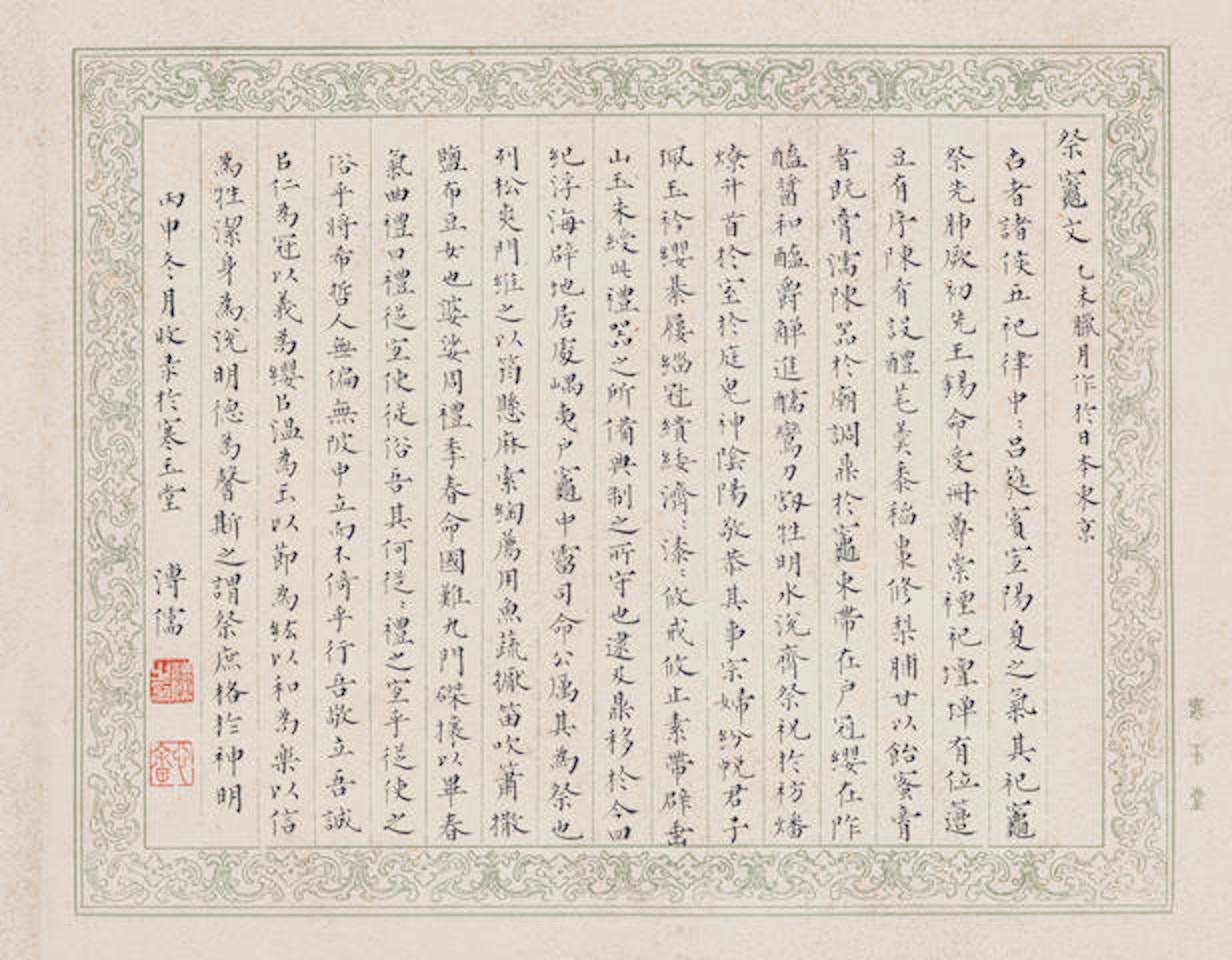 祭竈文 乙未臘月作於日本東京
古者諸侯五祀律中〻呂蕤賓宣陽夏之氣其祀竈
祭先肺厥初先王錫命受冊尊崇禋祀壇墠有位籩
豆有序陳有設醴芼羹黍稻棗修梨脯甘以飴蜜膏
者既膏濡陳器於廟調鼎於竈束帶在戶冠纓在阼
醢醬和醯爵觶進醹鸞刀 牲明水涗齊祭祝於祊燔
燎升首於室於庭鬼神陰陽敬恭其事宗婦紛帨君子
珮玉衿纓綦屨緇冠繢緌濟〻漆〻攸戒攸止素帶辟垂
山玉朱綬此禮器之所備典制之所守也逮及鼎移於今四
紀浮海辟地居處嵎夷戶竈中霤司命公厲其為祭也
列松夾門維之以筩懸麻索綯薦用魚蔬擫笛吹簫撒
鹽布豆女也婆娑周禮季春命國難九門磔攘以畢春
氣曲禮曰禮從宜使從俗吾其何從〻禮之宜乎從使之
俗乎將布哲人無偏無陂中立而不倚乎行吾敬立吾誠
㠯仁為冠以義為纓㠯溫為玉以節為紘以和為樂以信
為牲潔身為涗明德為馨斯之謂祭庶格於神明
丙申冬月收未於寒玉堂 溥儒
寒玉堂